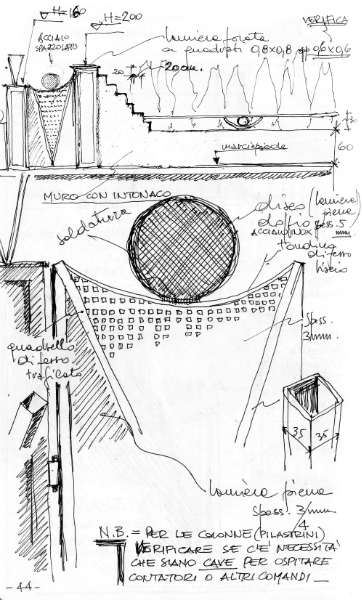 H=160
H=200
ACCIAIO
SPAZZOLATO
lamiera forata
a quadrati 0,8x0,8 opp 0,6x0,6
VERIFICA
20
20 cm.
60
marciapiede
MURO CON INTONACO
saldatura
disco (lamiera)
piena
spess. 5
mm
ACCIAIO INOX
tondino
di ferro
liscio
spess.
3/mm
quadrello
di ferro
trafilato
35
35
lamiera piena
spess. 3/mm
4
N.B. = PER LE COLONNE (PILASTRINI)
VERIFICARE SE C'È NECESSITÀ
CHE SIANO CAVE PER OSPITARE
CONTATORI O ALTRI COMANDI
-44-